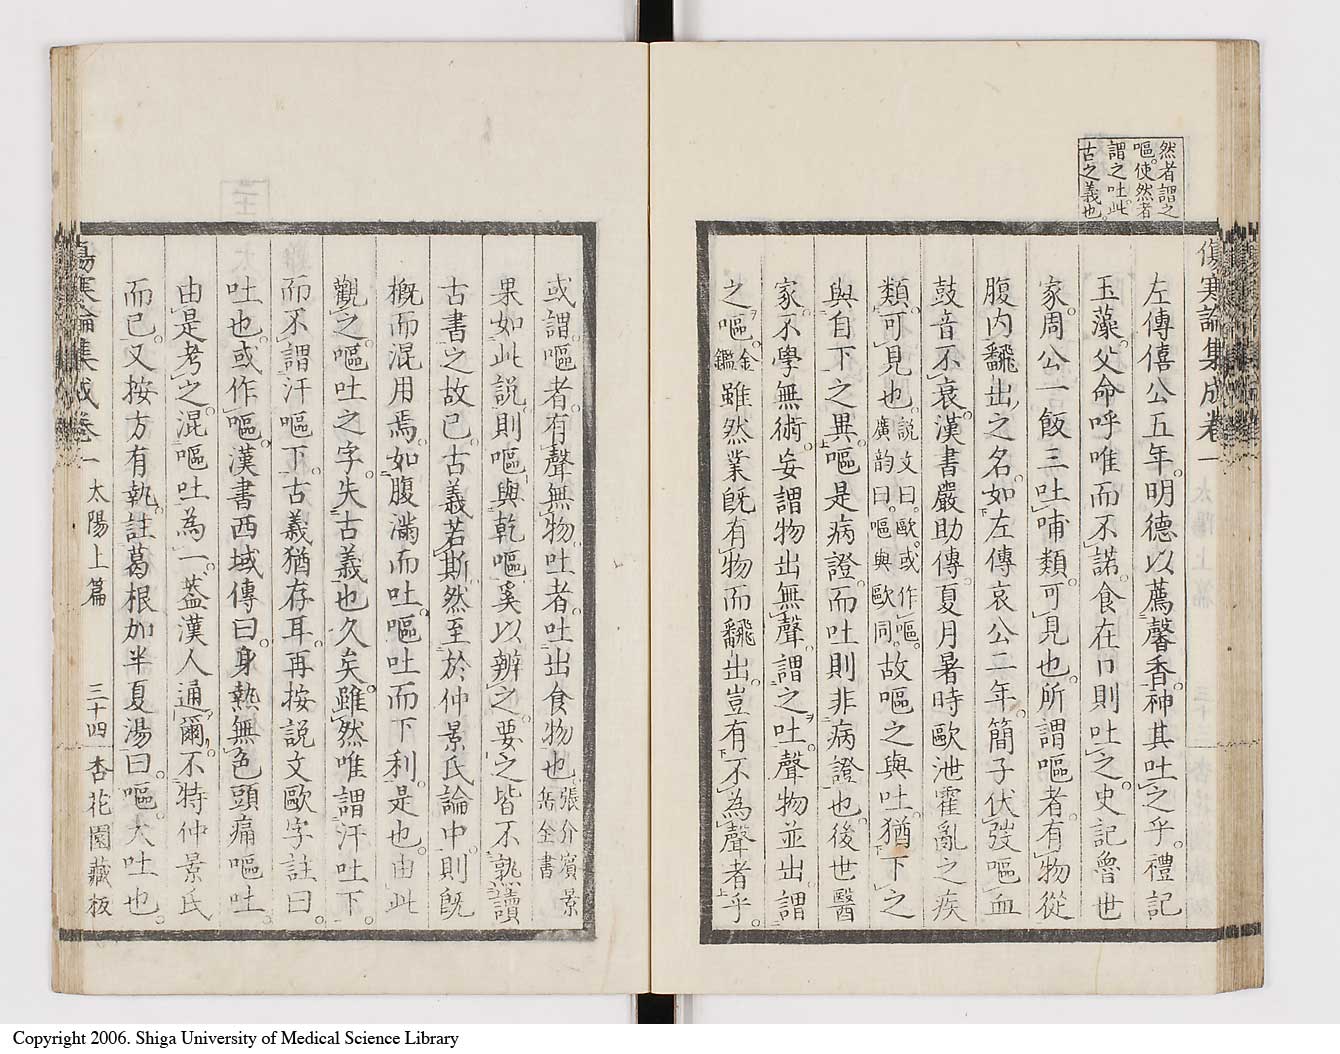 然者謂之
嘔。使然者
謂之吐。此
古之義也。
傷寒論集成卷一
左傳僖公五年。明德以薦馨香。神其吐之乎。禮記
玉藻。父命呼唯而不諾。食在口則吐之。史記魯世
家。周公一飯三吐哺類。可見也。所謂嘔者。有物從
腹内飜出之名。如左傳哀公二年。簡子伏弢嘔血
鼓音不衰。漢書嚴助傳。夏月暑時歐泄霍亂之疾
類。可見也。說文曰。歐。或作嘔。廣韵曰。嘔與歐同。故嘔之與吐。猶下之
與自下之異。嘔是病證。而吐則非病證也。後世醫
家。不學無術。妄謂物出無聲。謂之吐。聲物並出。謂
之嘔。金鑑雖然業既有物而飜出。豈有不為聲者乎。
或謂嘔者。有聲無物。吐者。吐出食物也張介賓景岳全書
果如此說。則嘔與乾嘔。奚以辨之。要之皆不熟讀
古書之故已。古義若斯。然至於仲景氏論中。則既
概而混用焉。如腹滿而吐。嘔吐而下利。是也。由此
觀之。嘔吐之字。失古義也久矣。雖然唯謂汗吐下。
而不謂汗嘔下。古義猶存耳。再按說文歐字註曰。
吐也。或作嘔。漢書西域傳曰。身熱無色頭痛嘔吐
由是考之。混嘔吐為一。蓋漢人通爾。不特仲景氏
而已。又按方有執註葛根加半夏湯曰。嘔。大吐也。
傷寒論集成卷一 太陽上篇 三十四 杏花園藏板